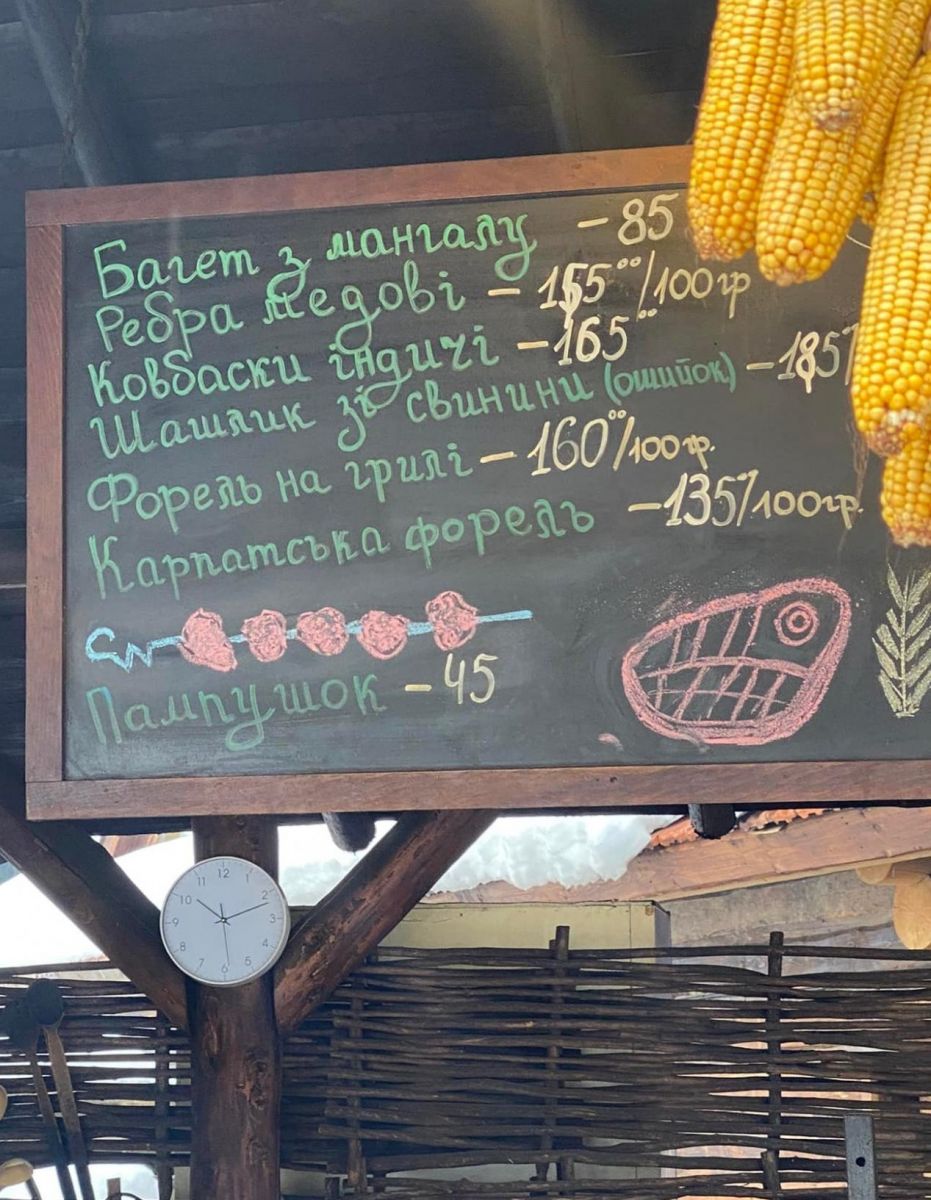 Багет з мангалу - 85
Ребра медові - 155°°/100гр
Ковбаски індичі - 165°°
Шашлик зі свинини (ошийок) - 185
Форель на грилі - 160°°/100гр.
Карпатська форель - 135°/100гр.
Пампушок - 45
12
11 1
10 2
9 3
8 4
7 5
6